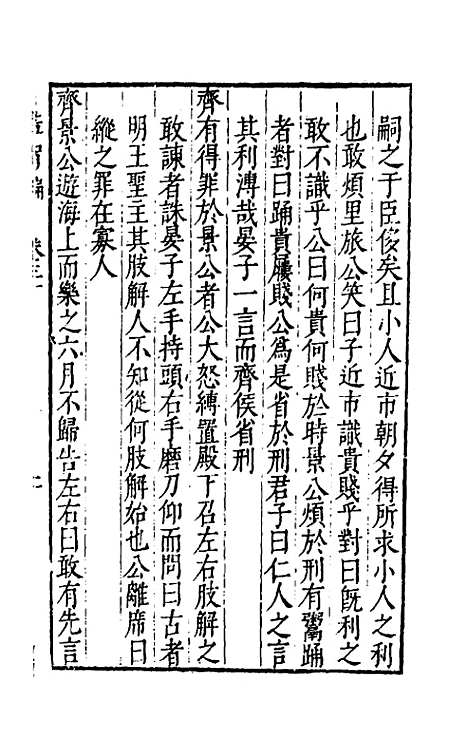 嗣之于臣侈矣且小人近市朝夕得所求小人之利
也敢煩里旅公笑曰子近市識貴賤乎對曰旣利之
敢不識乎公曰何貴何賤於時景公煩於刑有鬻踊
者對曰踊貴屨賤公爲是省於刑君子曰仁人之言
其利溥哉晏子一言而齊侯省刑
齊有得罪於景公者公大怒縛置殿下召左右肢解之
敢諫者誅晏子左手持頭右手磨刀仰而問曰古者
明王聖主其肢解人不知從何肢解始也公離席曰
縱之罪在寡人
齊景公遊海上而樂之六月不歸告左右曰敢有先言